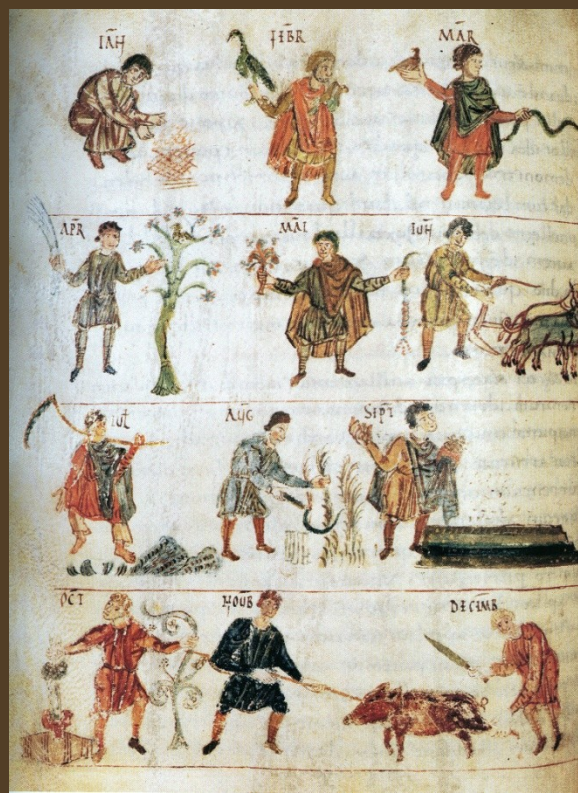 IAH
FEBR
MAR
APR
MAI
IUH
IUL
AUG
SEPT
OCT
NOUB
DECEMB